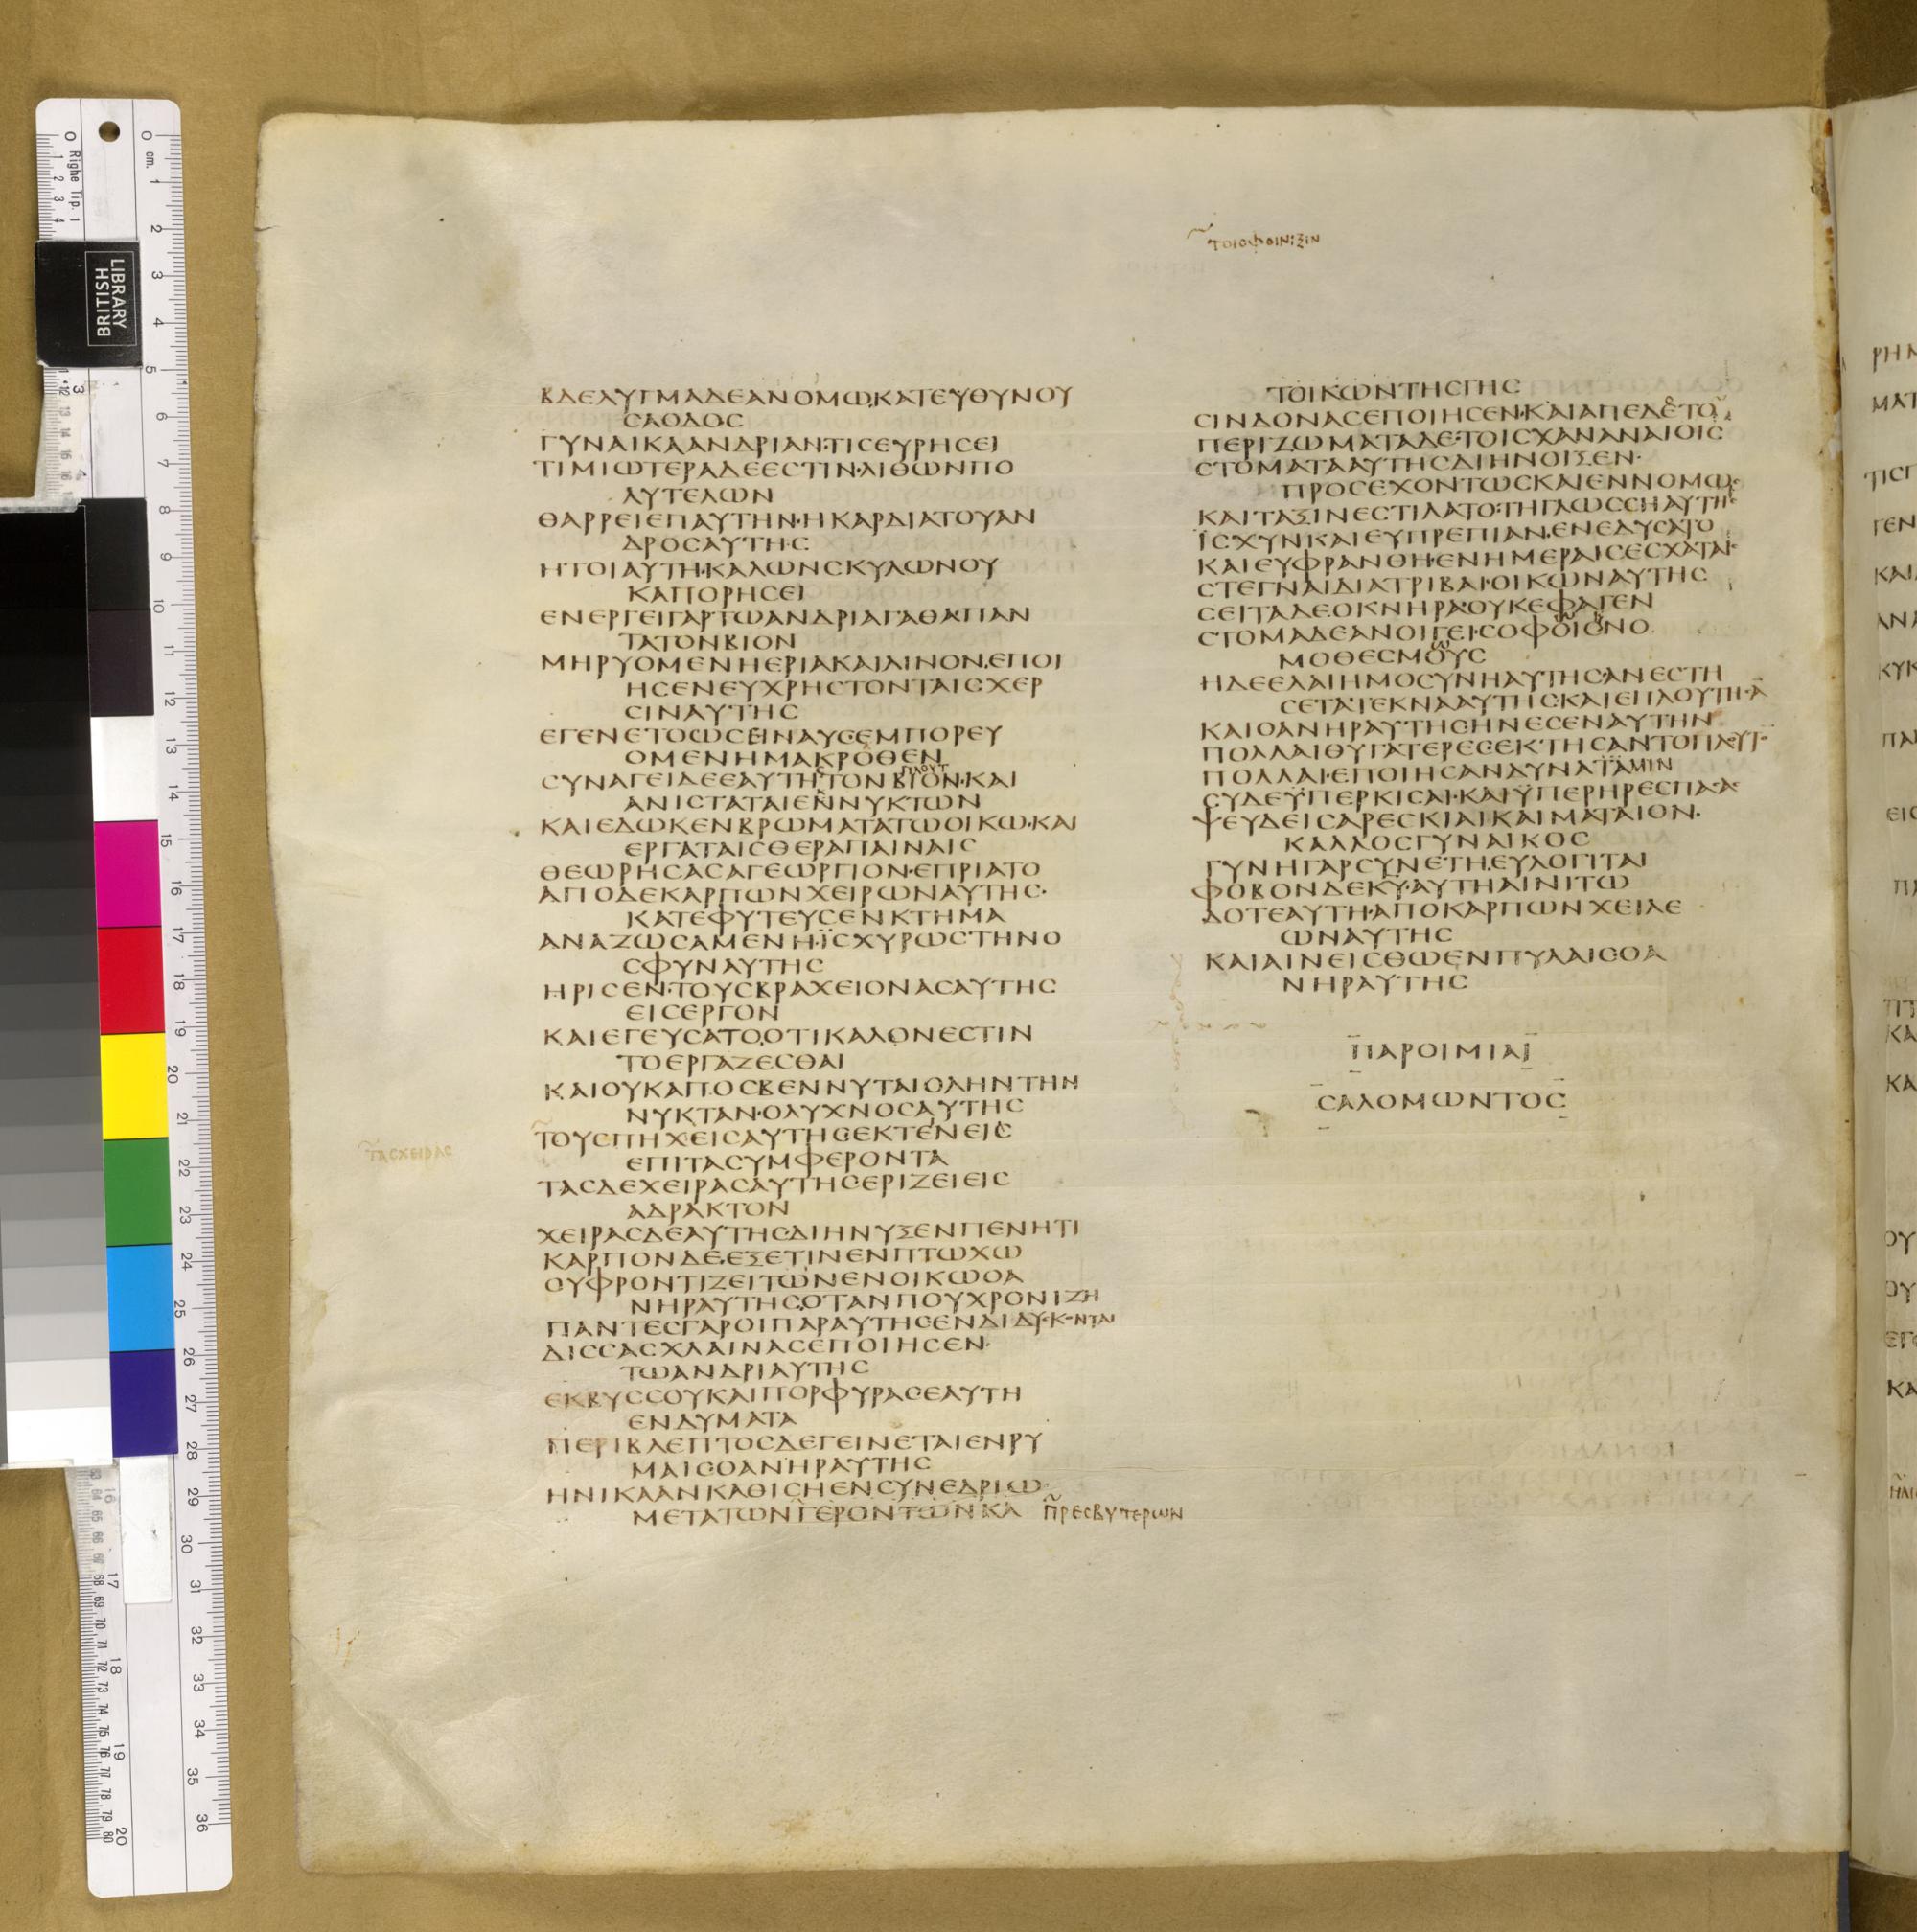 ΤΟΙϹΦΟΙΝΙΞΙΝ
ΒΔΕΛΥΓΜΑΔΕΑΝΟΜΩΚΑΤΕΥΘΥΝΟΥ
ϹΑΟΔΟϹ
ΓΥΝΑΙΚΑΑΝΔΡΙΑΝ·ΤΙϹΕΥΡΗϹΕΙ
ΤΙΜΙΩΤΕΡΑΔΕΕϹΤΙΝ·ΛΙΘΩΝΠΟ
ΛΥΤΕΛΩΝ
ΘΑΡΡΕΙΕΠΑΥΤΗΝ·ΗΚΑΡΔΙΑΤΟΥΑΝ
ΔΡΟϹΑΥΤΗϹ
ΗΤΟΙΑΥΤΗ·ΚΑΛΩΝϹΚΥΛΩΝΟΥ
ΚΑΠΟΡΗϹΕΙ
ΕΝΕΡΓΕΙΓΑΡΤΩΑΝΔΡΙΑΓΑΘΑΠΑΝ
ΤΑΤΟΝΒΙΟΝ
ΜΗΡΥΟΜΕΝΗΕΡΙΑΚΑΙΛΙΝΟΝ·ΕΠΟΙ
ΗϹΕΝΕΥΧΡΗϹΤΟΝΤΑΙϹΧΕΡ
ϹΙΝΑΥΤΗϹ
ΕΓΕΝΕΤΟΩϹΕΙΝΑΥϹΕΜΠΟΡΕΥ
ΟΜΕΝΗΜΑΚΡΟΘΕΝ
ΠΛΟΥΤ
ϹΥΝΑΓΕΙΔΕΕΑΥΤΗΤΟΝΒΙΟΝ·ΚΑΙ
ΑΝΙϹΤΑΤΑΙΕΝΝΥΚΤΩΝ
ΚΑΙΕΔΩΚΕΝΒΡΩΜΑΤΑΤΩΟΙΚΩ·ΚΑΙ
ΕΡΓΑΤΑΙϹΘΕΡΑΠΑΙΝΑΙϹ
ΘΕΩΡΗϹΑϹΑΓΕΩΡΓΙΟΝ·ΕΠΡΙΑΤΟ
ΑΠΟΔΕΚΑΡΠΩΝΧΕΙΡΩΝΑΥΤΗϹ·
ΚΑΤΕΦΥΤΕΥϹΕΝΚΤΗΜΑ
ΑΝΑΖΩϹΑΜΕΝΗ·ΪϹΧΥΡΩϹΤΗΝΟ
ϹΦΥΝΑΥΤΗϹ
ΗΡΙϹΕΝ·ΤΟΥϹΒΡΑΧΕΙΟΝΑϹΑΥΤΗϹ
ΕΙϹΕΡΓΟΝ
ΚΑΙΕΓΕΥϹΑΤΟ·ΟΤΙΚΑΛΟΝΕϹΤΙΝ
ΤΟΕΡΓΑΖΕϹΘΑΙ
ΚΑΙΟΥΚΑΠΟϹΒΕΝΝΥΤΑΙΟΛΗΝΤΗΝ
ΝΥΚΤΑΝ·ΟΛΥΧΝΟϹΑΥΤΗϹ
ΤΑϹΧΕΙΡΑϹ
ΤΟΥϹΠΗΧΕΙϹΑΥΤΗϹΕΚΤΕΝΕΙϹ
ΕΠΙΤΑϹΥΜΦΕΡΟΝΤΑ
ΤΑϹΔΕΧΕΙΡΑϹΑΥΤΗϹΕΡΙΖΕΙΕΙϹ
ΑΔΡΑΚΤΟΝ
ΧΕΙΡΑϹΔΕΑΥΤΗϹΔΙΗΝΥΞΕΝΠΕΝΗΤΙ
ΚΑΡΠΟΝΔΕ·ΕΞΕΤΙΝΕΝΠΤΩΧΩ
ΟΥΦΡΟΝΤΙΖΕΙΤΩΝΕΝΟΙΚΩΟΑ
ΝΗΡΑΥΤΗϹ·ΟΤΑΝΠΟΥΧΡΟΝΙΖΗ
ΠΑΝΤΕϹΓΑΡΟΙΠΑΡΑΥΤΗϹΕΝΔΙΔΥϹΚΟΝΤΑΙ
ΔΙϹϹΑϹΧΛΑΙΝΑϹΕΠΟΙΗϹΕΝ·
ΤΩΑΝΔΡΙΑΥΤΗϹ
ΕΚΒΥϹϹΟΥΚΑΙΠΟΡΦΥΡΑϹΕΑΥΤΗ
ΕΝΔΥΜΑΤΑ
ΠΕΡΙΒΛΕΠΤΟϹΔΕΓΕΙΝΕΤΑΙΕΝΡΥ
ΜΑΙϹΟΑΝΗΡΑΥΤΗϹ
ΗΝΙΚΑΑΝΚΑΘΙϹΗΕΝϹΥΝΕΔΡΙΩ·
ΜΕΤΑΤΩΝΓΕΡΟΝΤΩΝΚΑ ΠΡΕϹΒΥΤΕΡΩΝ
ΤΟΙΚΩΝΤΗϹΓΗϹ
ϹΙΝΔΟΝΑϹΕΠΟΙΗϹΕΝ·ΚΑΙΑΠΕΔΕΤΟ
ΠΕΡΙΖΩΜΑΤΑΔΕ·ΤΟΙϹΧΑΝΑΝΑΙΟΙϹ
ϹΤΟΜΑΤΑΑΥΤΗϹΔΙΗΝΟΙΞΕΝ·
ΠΡΟϹΕΧΟΝΤΩϹΚΑΙΕΝΝΟΜΩϹ
ΚΑΙΤΑΞΙΝΕϹΤΙΛΑΤΟ·ΤΗΓΛΩϹϹΗΑΥΤΗϹ
ΪϹΧΥΝΚΑΙΕΥΠΡΕΠΙΑΝ·ΕΝΕΔΥϹΑΤΟ
ΚΑΙΕΥΦΡΑΝΘΗ·ΕΝΗΜΕΡΑΙϹΕϹΧΑΤΑΙϹ
ϹΤΕΓΝΑΙΔΙΑΤΡΙΒΑΙ·ΟΙΚΩΝΑΥΤΗϹ
ϹΕΙΤΑΔΕ·ΟΚΝΗΡΑΟΥΚΕΦΑΓΕΝ
ϹΤΟΜΑΔΕΑΝΟΙΓΕΙ·ϹΟΦΟΙϹΝΟ
ΜΟΘΕϹΜΟΥϹ
ΗΔΕΕΛΑΙΗΜΟϹΥΝΗΑΥΤΗϹΑΝΕϹΤΗ
ϹΕΤΑΤΕΚΝΑΑΥΤΗϹΚΑΙΕΠΛΟΥΤΗϹΑ
ΚΑΙΟΑΝΗΡΑΥΤΗϹΗΝΕϹΕΝΑΥΤΗΝ
ΠΟΛΛΑΙΘΥΓΑΤΕΡΕϹΕΚΤΗϹΑΝΤΟΠΛΟΥΤΟ
ΠΟΛΛΑΙ·ΕΠΟΙΗϹΑΝΔΥΝΑΤΑΜΙΝ
ϹΥΔΕΫΠΕΡΚΙϹΑΙ·ΚΑΙΫΠΕΡΗΡΕϹΠΑϹΑϹ
ΨΕΥΔΕΙϹΑΡΕϹΚΙΑΙΚΑΙΜΑΤΑΙΟΝ·
ΚΑΛΛΟϹΓΥΝΑΙΚΟϹ
ΓΥΝΗΓΑΡϹΥΝΕΤΗ·ΕΥΛΟΓΙΤΑΙ
ΦΟΒΟΝΔΕΚΥ·ΑΥΤΗΑΙΝΙΤΩ
ΔΟΤΕΑΥΤΗ·ΑΠΟΚΑΡΠΩΝΧΕΙΛΕ
ΩΝΑΥΤΗϹ
ΚΑΙΑΙΝΕΙϹΘΩΕΝΠΥΛΑΙϹΟΑ
ΝΗΡΑΥΤΗϹ
ΠΑΡΟΙΜΙΑΙ
ϹΑΛΟΜΩΝΤΟϹ
BRITISH
LIBRARY